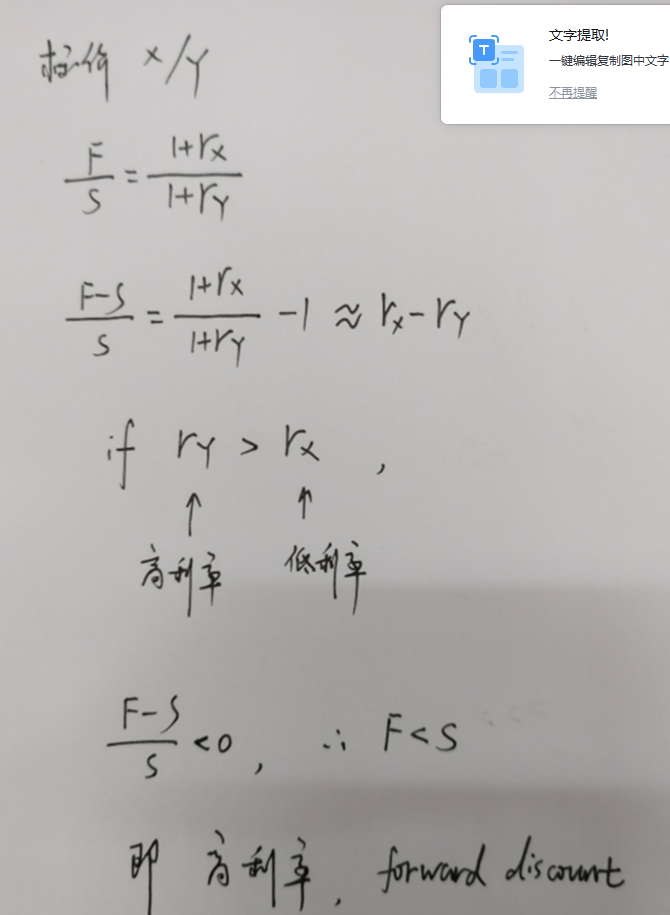 标价 X/Y
文字提取!
一键编辑复制图中文字
不再提醒
F/S = (1+rX)/(1+rY)
(F-S)/S = (1+rX)/(1+rY) -1 ≈ rX-rY
if rY > rX ,
↑ ↑
高利率 低利率
(F-S)/S <0, ∴ F<S
即 高利率, forward discount